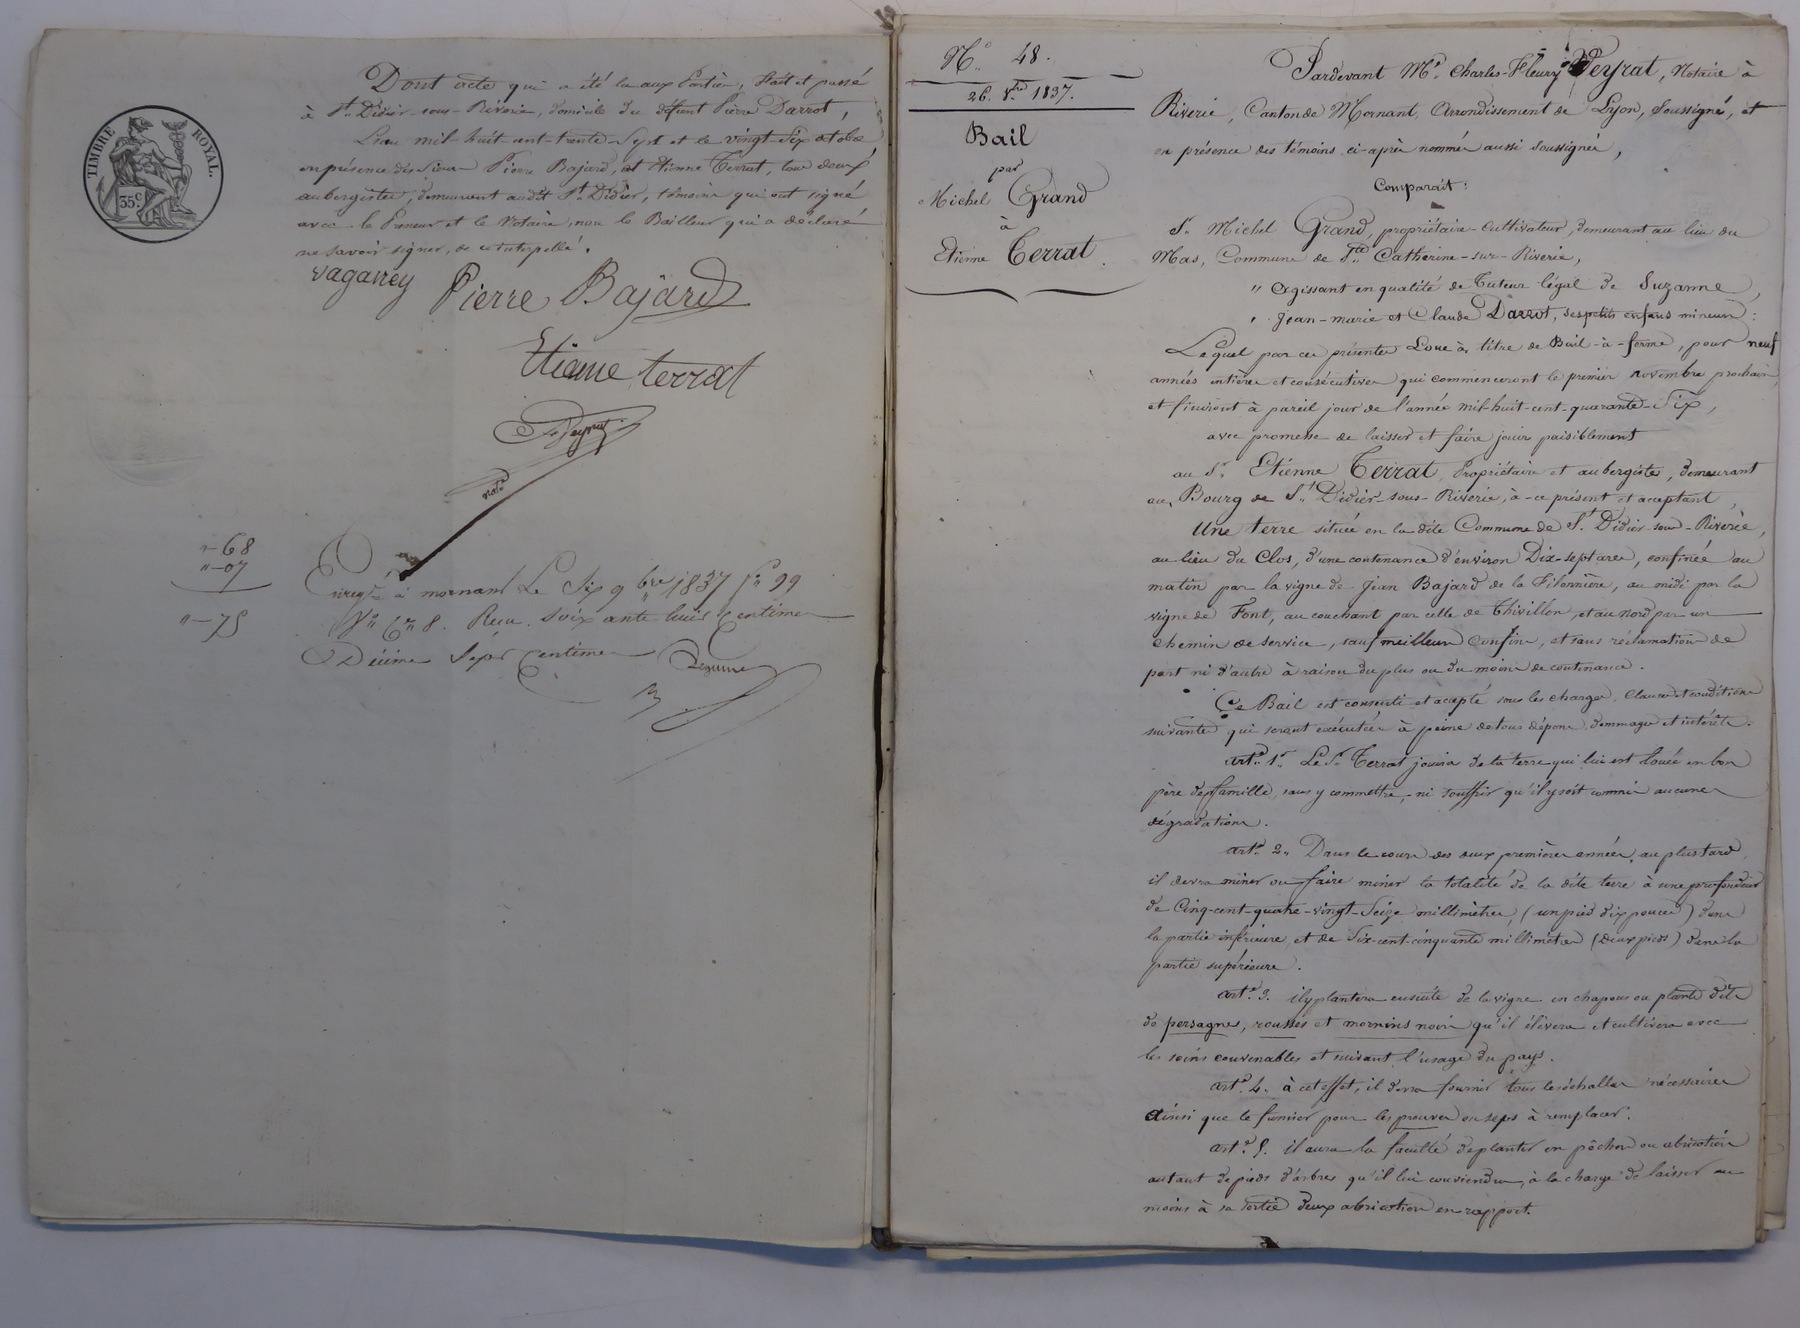 TIMBRE ROYAL.
35 c
Dont acte qui a été lu aux Parties, fait et passé
à St. Didier-sous-Riverie, domicile du défunt Pierre Darrot,
L'an mil-huit-cent-trente-sept et le vingt-six octobre
en présence des Sieurs Pierre Bajard, et Etienne Terrat, tous deux
aubergistes, demeurant audit St. Didier, témoins qui ont signé
avec le Preneur et le Notaire, non le Bailleur qui a déclaré
ne savoir signer, de ce interpellé.
vaganey Pierre Bajard
Etienne terrat
Peyrat
notre
"-68
"-07
"-75
Enregtré à mornant Le Six 9bre 1837 fo 99
Vo Ces 8. Reçu soixante huit Centimes
Décime Sept Centimes
No. 48.
26. 8bre 1837.
Bail
par
Michel Grand
à
Etienne Terrat.
Pardevant Me. Charles-Fleury Peyrat, Notaire à
Riverie, Canton de Mornant, Arrondissement de Lyon, Soussigné, et
en présence des témoins ci-après nommés aussi soussignés,
Comparait:
Sr. Michel Grand, propriétaire-Cultivateur, demeurant au lieu du
Mas, Commune de Ste Catherine-sur-Riverie,
" Agissant en qualité de Tuteur légal de Suzanne,
Jean-marie et Claude Darrot, ses petits enfans mineurs:
Lequel par ces présentes Loue à titre de Bail-à-ferme, pour neuf
années entières et consécutives qui commenceront le premier novembre prochain,
et finiront à pareil jour de l'année mil-huit-cent-quarante-Six,
avec promesse de laisser et faire jouir paisiblement
au Sr. Etienne Terrat, Propriétaire et aubergiste, demeurant
au Bourg de St. Didier-sous-Riverie, à-ce présent et acceptant,
Une terre située en la dite Commune de St. Didier-sous-Riverie,
au lieu du Clos, d'une contenance d'environ Dix-sept ares, confinée au
matin par la vigne de Jean Bajard de la Filonnière, au midi par la
vigne de Font, au couchant par celle de Thivillon, et au nord par un
chemin de service, sauf meilleurs Confins, et sans réclamation de
part ni d'autre à raison du plus ou du moins de contenance.
Ce Bail est consenti et accepté sous les charges, Clauses et conditions
suivantes qui seront exécutées à peine de tous dépens, dommages et intérêts.
Arte. 1er. Le Sr. Terrat jouira de la terre qui lui est louée en bon
père de famille, sans y commettre, ni souffrir qu'il y soit commis aucunes
dégradations.
arte. 2. Dans le cours des deux premières années, au plus tard,
il devra miner ou faire miner la totalité de la dite terre à une profondeur
de Cinq-cent-quatre-vingt-Seize millimètres, (un pied dix pouces) dans
la partie inférieure, et de Six-cent-cinquante millimètres (deux pieds) dans la
partie supérieure.
arte. 3. il y plantera ensuite de la vigne en chapons ou plants dits
de persagnes, rousses et mornins noirs qu'il élèvera et cultivera avec
les soins convenables et suivant l'usage du pays.
arte. 4. à cet effet, il devra fournir tous les échallas nécessaires
Ainsi que le fumier pour les prouves ou seps à remplacer.
arte. 5. il aura la faculté de planter en pêchers ou abricotiers
autant de pieds d'arbres qu'il lui conviendra, à la charge de laisser au
moins à sa sortie deux abricotiers en rapport.